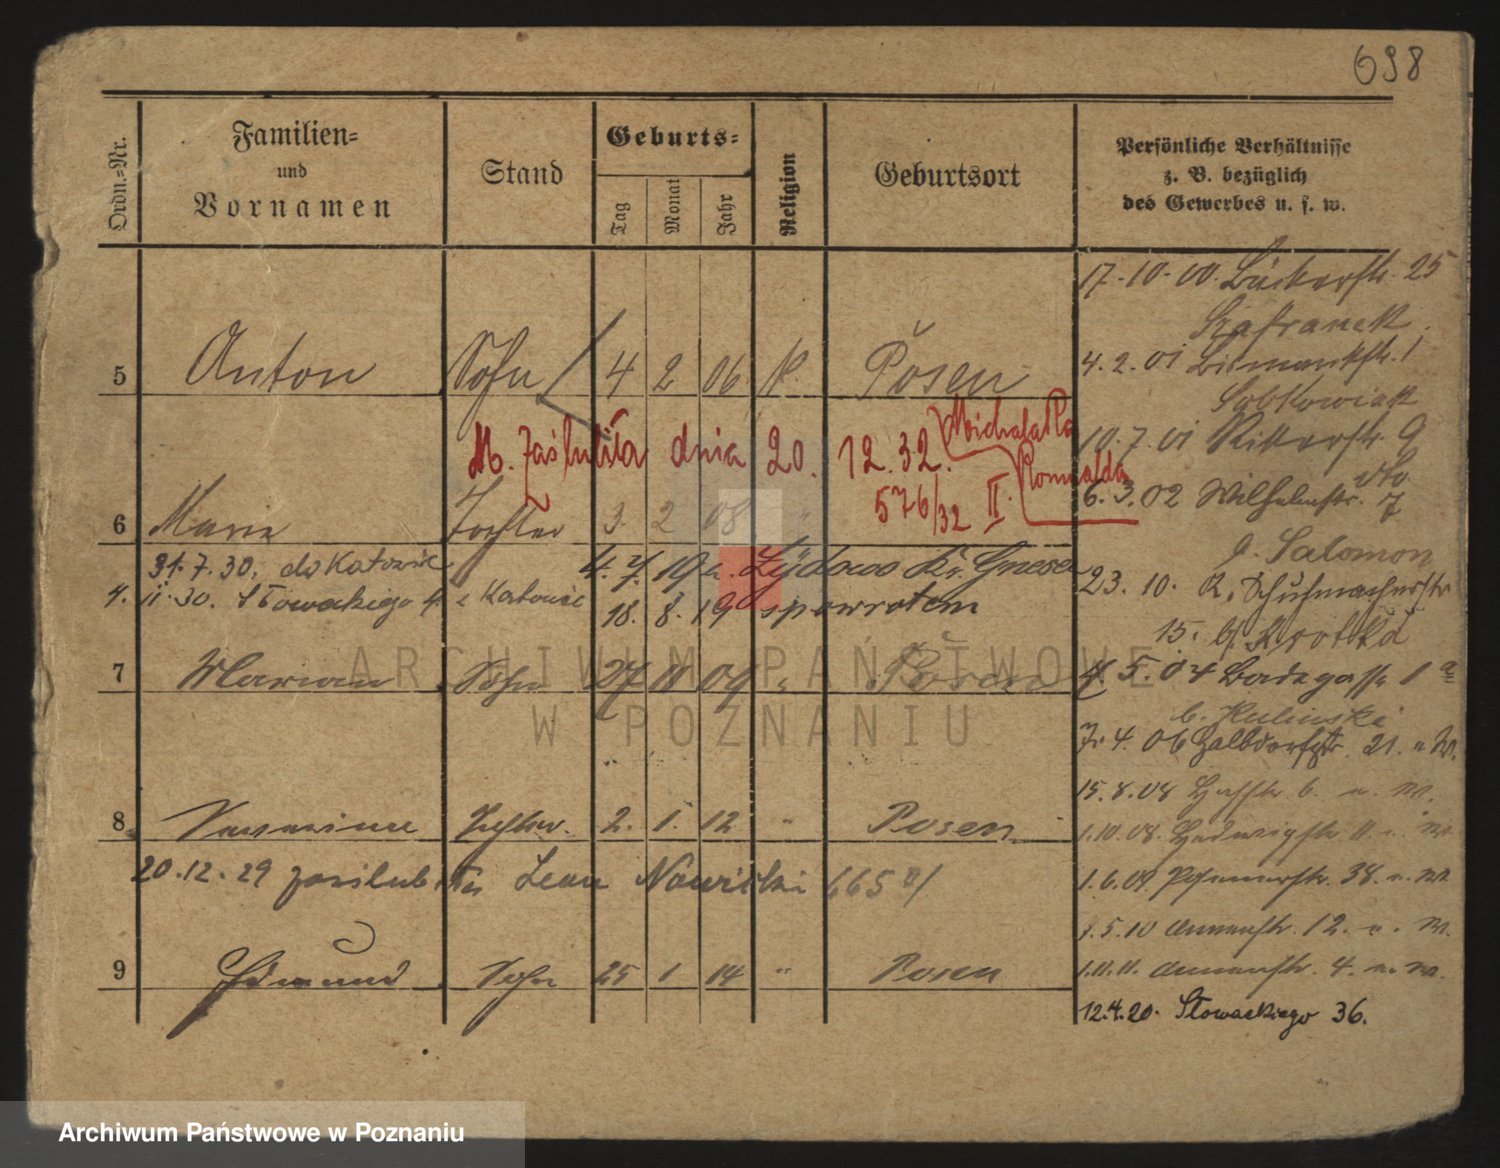 698
Ordn.=Nr.
Familien=
und
Vornamen
Stand
Geburts=
Tag
Monat
Jahr
Religion
Geburtsort
Persönliche Verhältnisse
z. B. bezüglich
des Gewerbes u. s. w.
17.10.00. Bäckerstr. 25
Szafranek
5 Anton Sohn 4 2 06 k. Posen
4.2.01 Bismarckstr. 1
Sobkowiak
10.7.01 Ritterstr. 9
M. zaślubiła dnia 20. 12. 32. Michalaka
Romualda
576/32 II.
6.3.02 Wilhelmstr. 7
6 Maria Tochter 3. 2 08 "
b. Salomon
31.7.30. do Katowic 4. 7. 19 Żydowo Kr. Gnesen
23. 10. Schuhmacherstr
4. 11. 30. Słowackiego z Katowic 18. 8. 19 spowrotem
15. b. Krotka
7 Marian Sohn 27 11 09 " Posen
5.04 Badegasse 1a
b. Kulinski
7.4.06 Halbdorfstr. 21. u W.
15.8.08 6. u. W.
8 Tochter. 2. 1. 12 " Posen
1.10.08. Hedwigstr. 11 u. W.
20.12.29 zaślubiła Leon Nowicki 665
1.6.09 Posenerstr. 38. u. W
1.5.10 Annenstr. 12. u. W.
9 Edmund Sohn 25 1 14 " Posen
1.11.11. Annenstr. 4. u. W.
12.4.20. Słowackiego 36.
ARCHIWUM PAŃSTWOWE
W POZNANIU
Archiwum Państwowe w Poznaniu